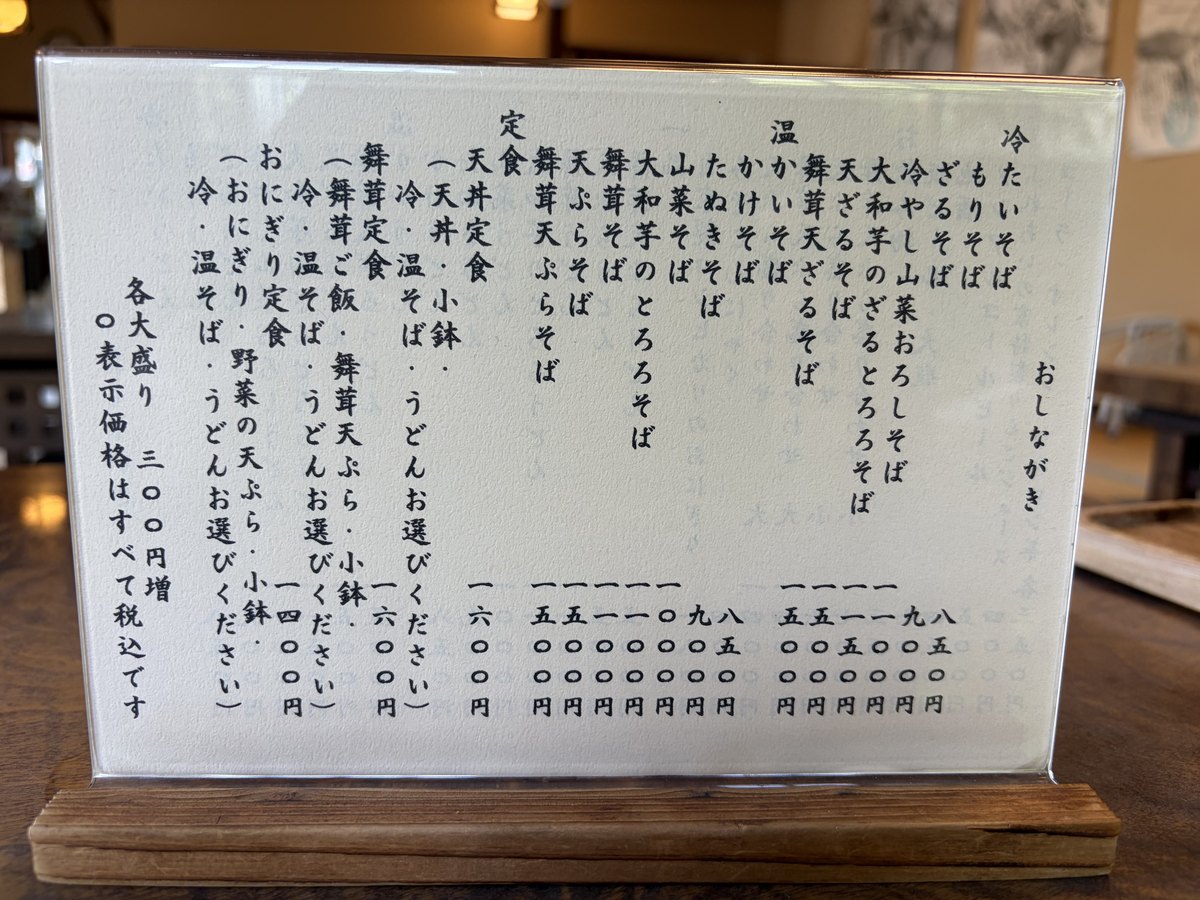 おしながき
冷たいそば
もりそば 八五〇円
ざるそば 九〇〇円
冷やし山菜おろしそば 一一〇〇円
大和芋のざるとろろそば 一一五〇円
天ざるそば 一五〇〇円
舞茸天ざるそば 一五〇〇円
温かいそば
かけそば 八五〇円
たぬきそば 九〇〇円
山菜そば 一〇〇〇円
大和芋のとろろそば 一一〇〇円
舞茸そば 一一〇〇円
天ぷらそば 一五〇〇円
舞茸天ぷらそば 一五〇〇円
定食
天丼定食 一六〇〇円
(天丼・小鉢・
冷・温そば・うどんお選びください)
舞茸定食 一六〇〇円
(舞茸ご飯・舞茸天ぷら・小鉢・
冷・温そば・うどんお選びください)
おにぎり定食 一四〇〇円
(おにぎり・野菜の天ぷら・小鉢・
冷・温そば・うどんお選びください)
各大盛り 三〇〇円増
〇表示価格はすべて税込です